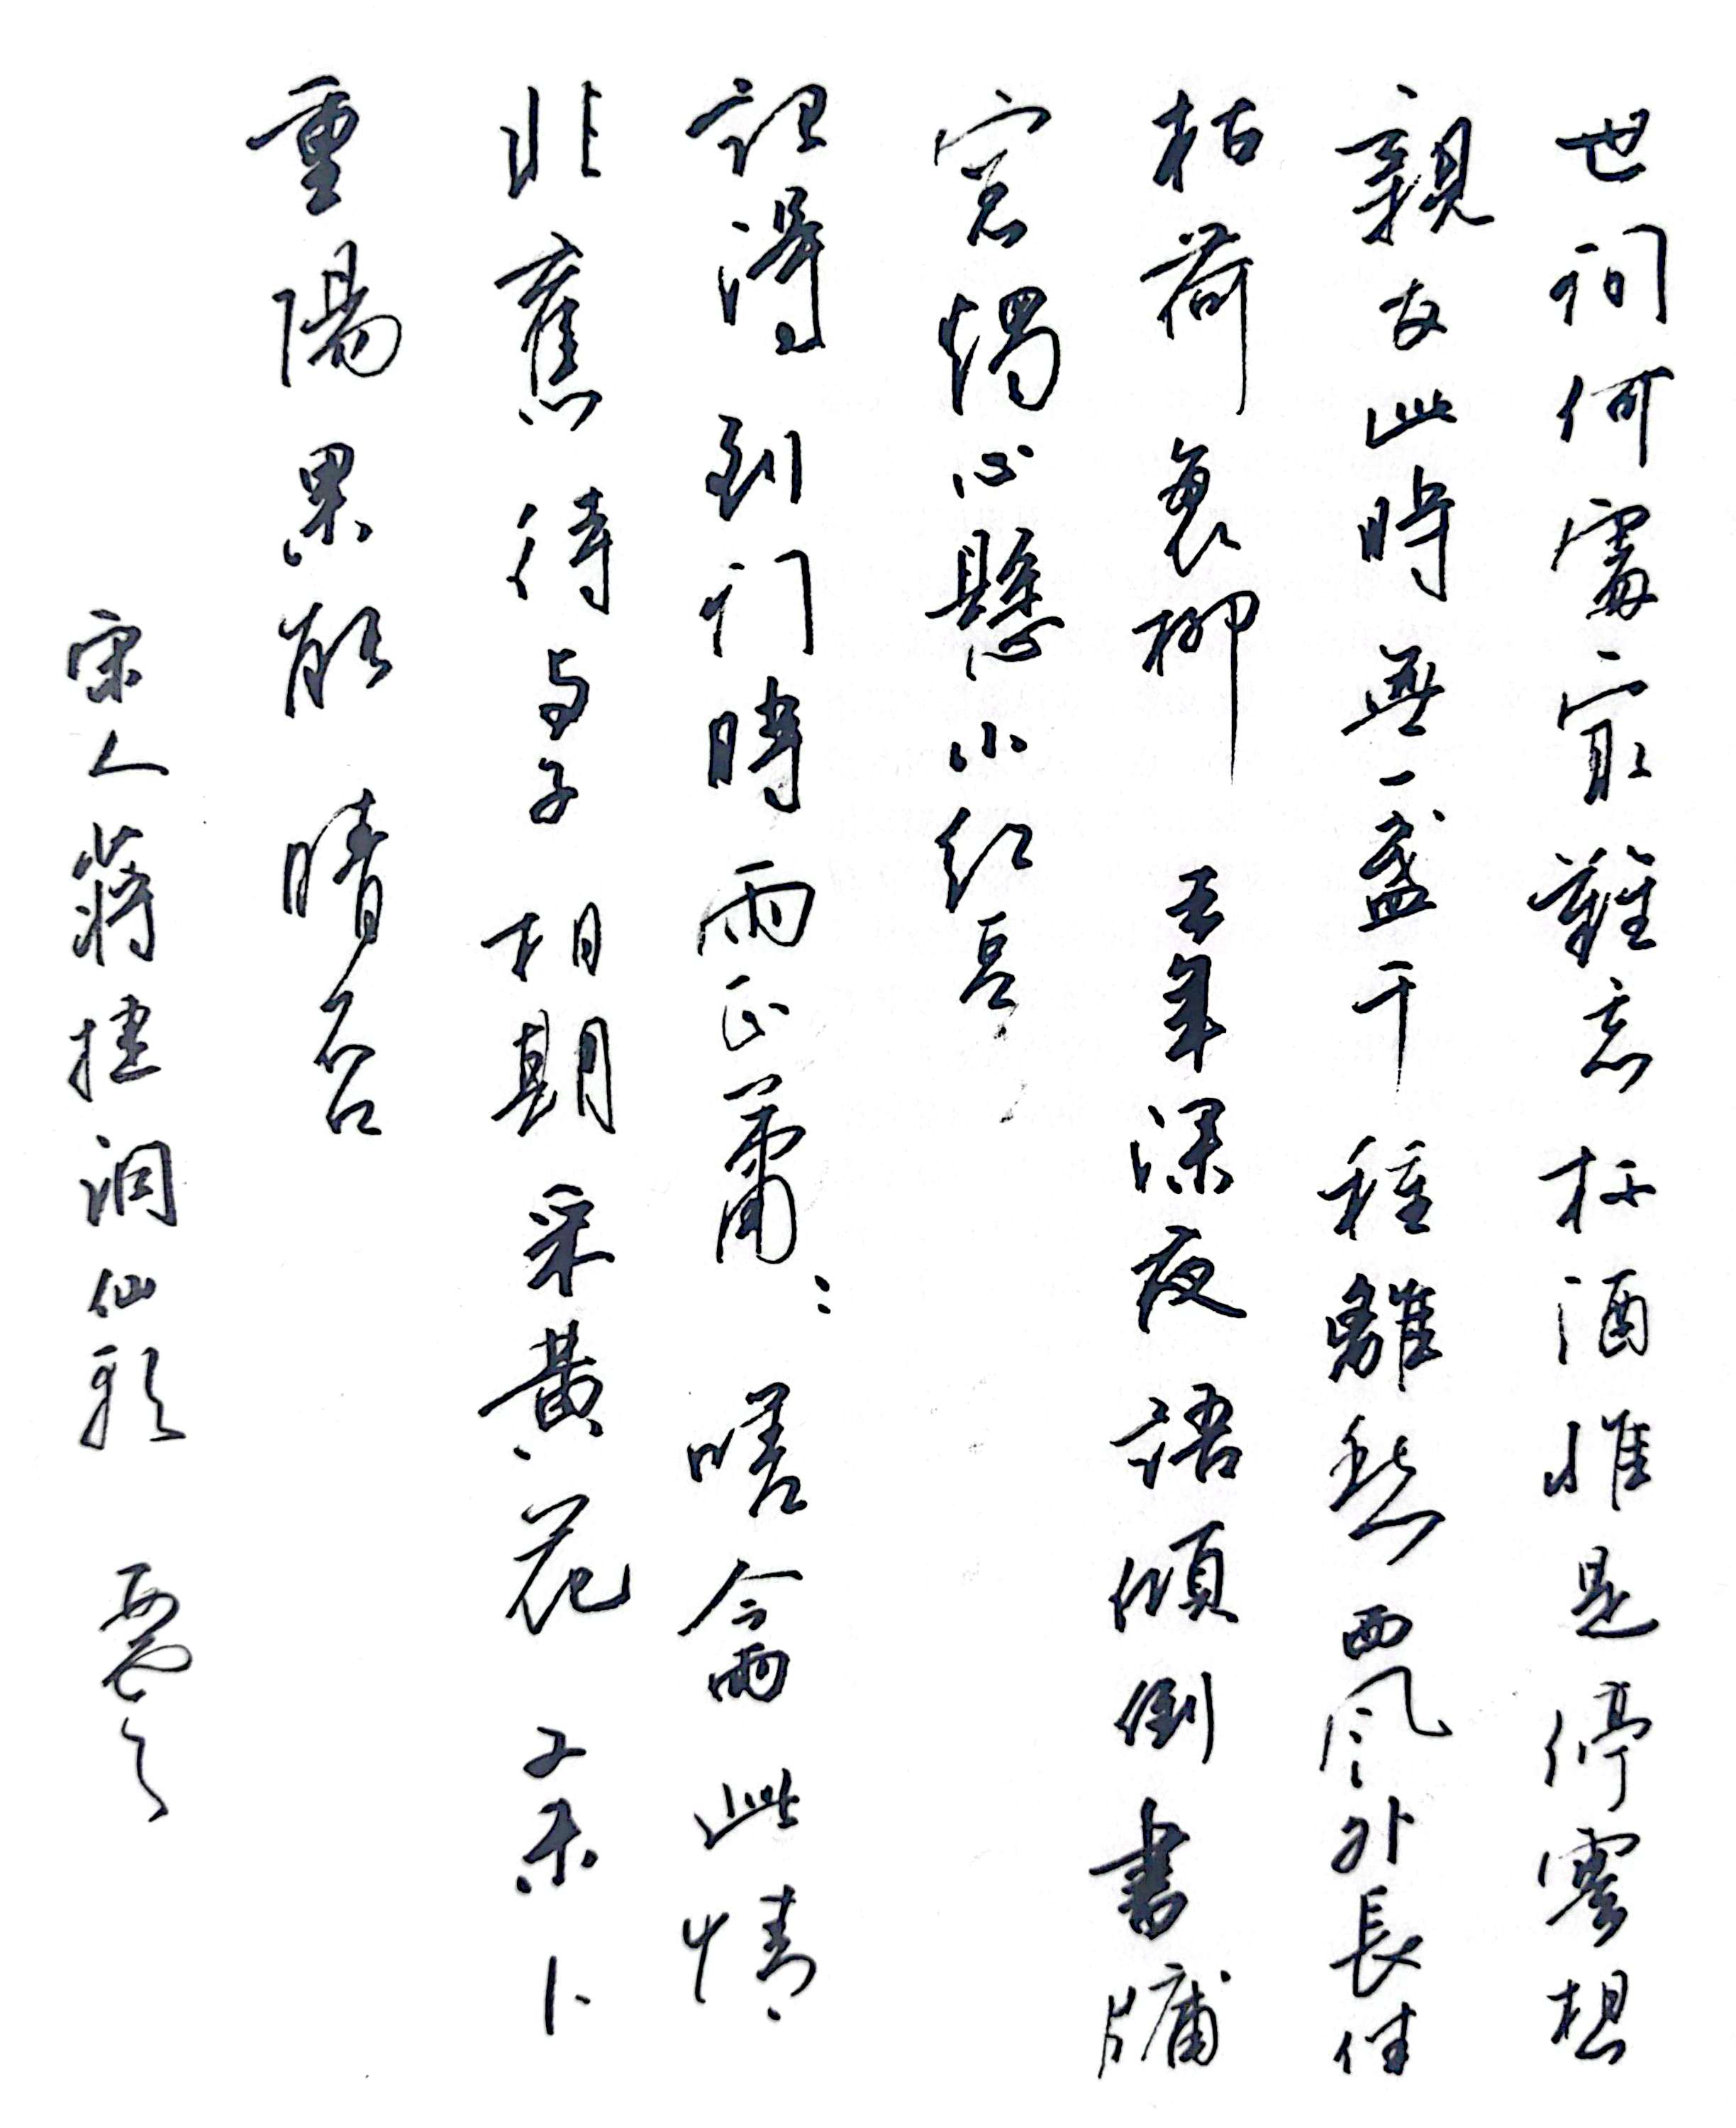 世間何處最難忘杯酒惟是停雲想
親友此時無一盞千種離愁西風外長伴
枯荷衰柳 去年深夜語傾倒書牖
窗燭心懸小紅豆
記得到門時雨正蕭〻嗟今雨此情
非舊待与子相期采黃花又未卜
重陽果能晴否
宋人蔣捷洞仙歌